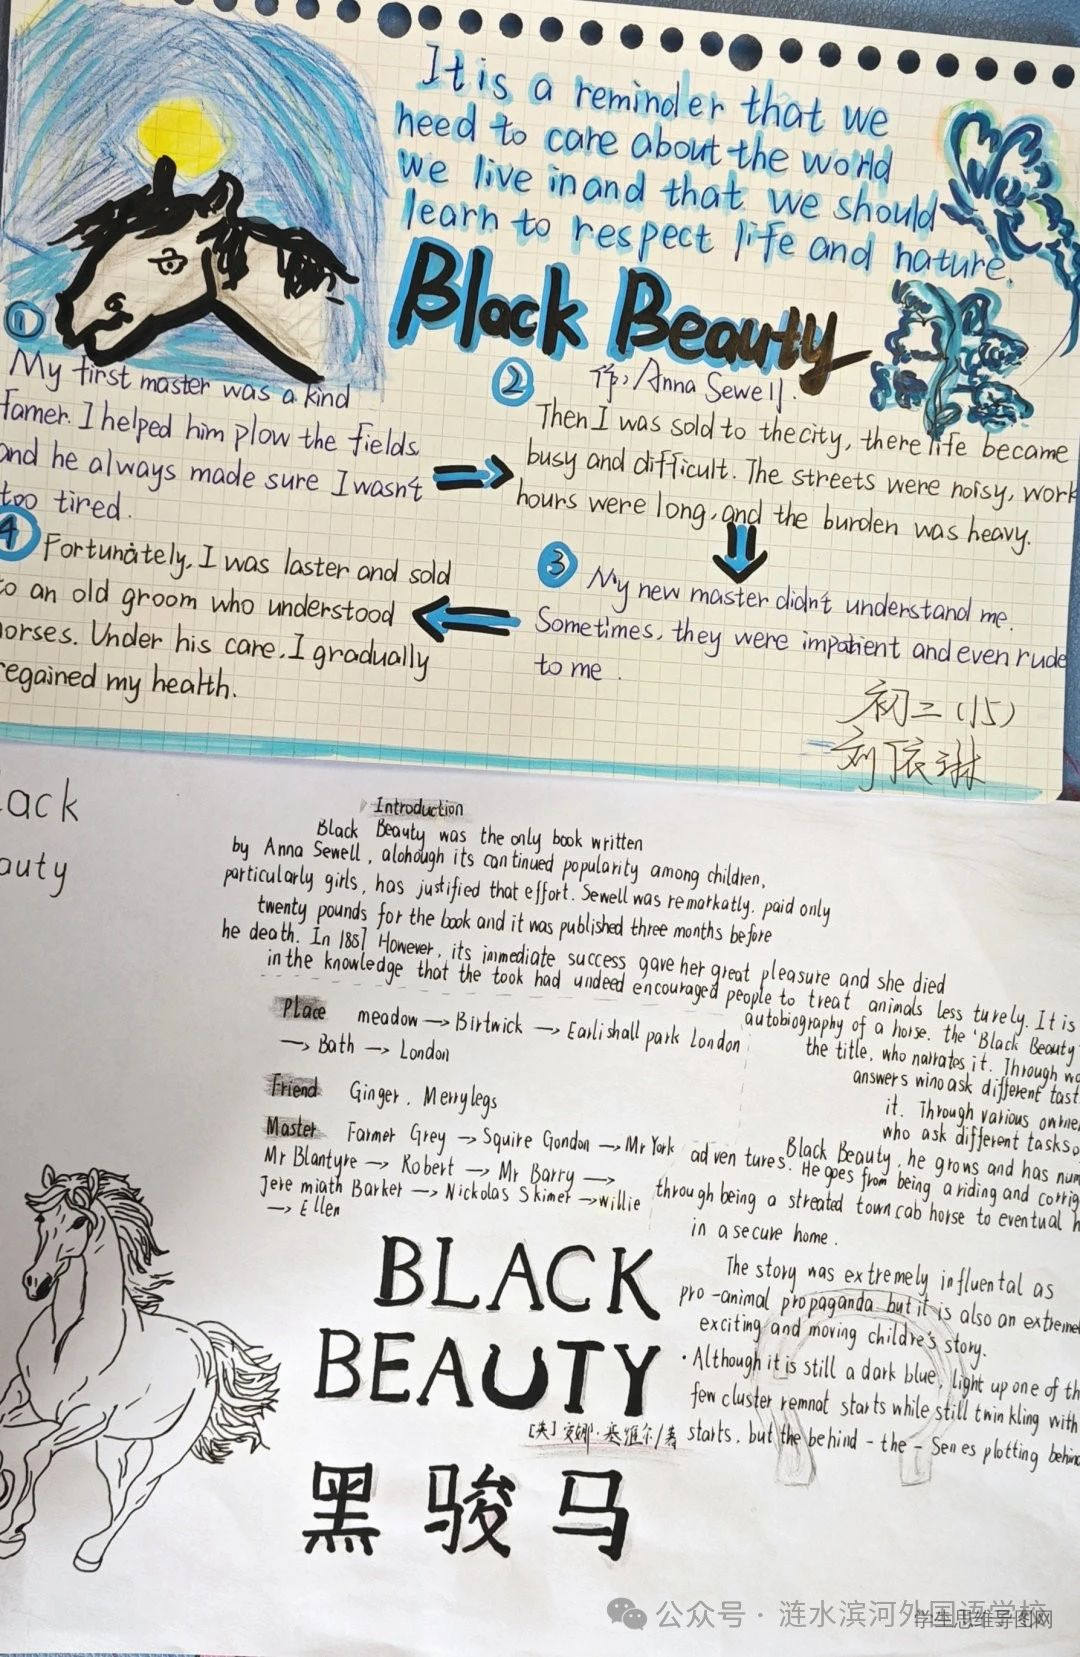 It is a reminder that we
need to care about the world
we live in and that we should
learn to respect life and nature.
Black Beauty
作:Anna Sewell.
①
My first master was a kind
famer. I helped him plow the fields
and he always made sure I wasn't
too tired.
②
Then I was sold to the city, there life became
busy and difficult. The streets were noisy, work
hours were long, and the burden was heavy.
③
My new master didn't understand me.
Sometimes, they were impatient and even rude
to me.
4
Fortunately, I was laster and sold
to an old groom who understood
horses. Under his care, I gradually
regained my health.
初三(15)
刘依琳
lack
auty
Introduction
Black Beauty was the only book written
by Anna Sewell, alohough its continued popularity among children,
particularly girls, has justified that effort. Sewell was remarkatly. paid only
twenty pounds for the book and it was published three months before
he death. In 1887 However, its immediate success gave her great pleasure and she died
in the knowledge that the took had undeed encouraged people to treat animals less turely. It is
autobiography of a horse. the 'Black Beauty'
the title, who narrates it. Through
answers wino ask different tast
it. Through various owne
who ask different tasks
Black Beauty, he grows and has num
adventures. He goes from being a riding and corrig
through being a streated town cab horse to eventual h
in a secure home.
Place meadow → Birtwick → Earlishall park London
→ Bath → London
Friend Ginger. Merrylegs
Master Farmer Grey → Squire Gondon → Mr York
Mr Blantyre → Robert → Mr Barry →
Jeremiath Barker → Nickolas Skimer → willie
→ Ellen
The story was extremely influental as
pro-animal propaganda but it is also an extreme
exciting and moving childre's story.
·Although it is still a dark blue, light up one of th
few cluster remnat starts while still twinkling with
starts, but the behind-the-Senes plotting behind
BLACK
BEAUTY
[英]安娜·塞维尔/著
黑骏马
公众号·涟水滨河外国语学校
学生思维导图网